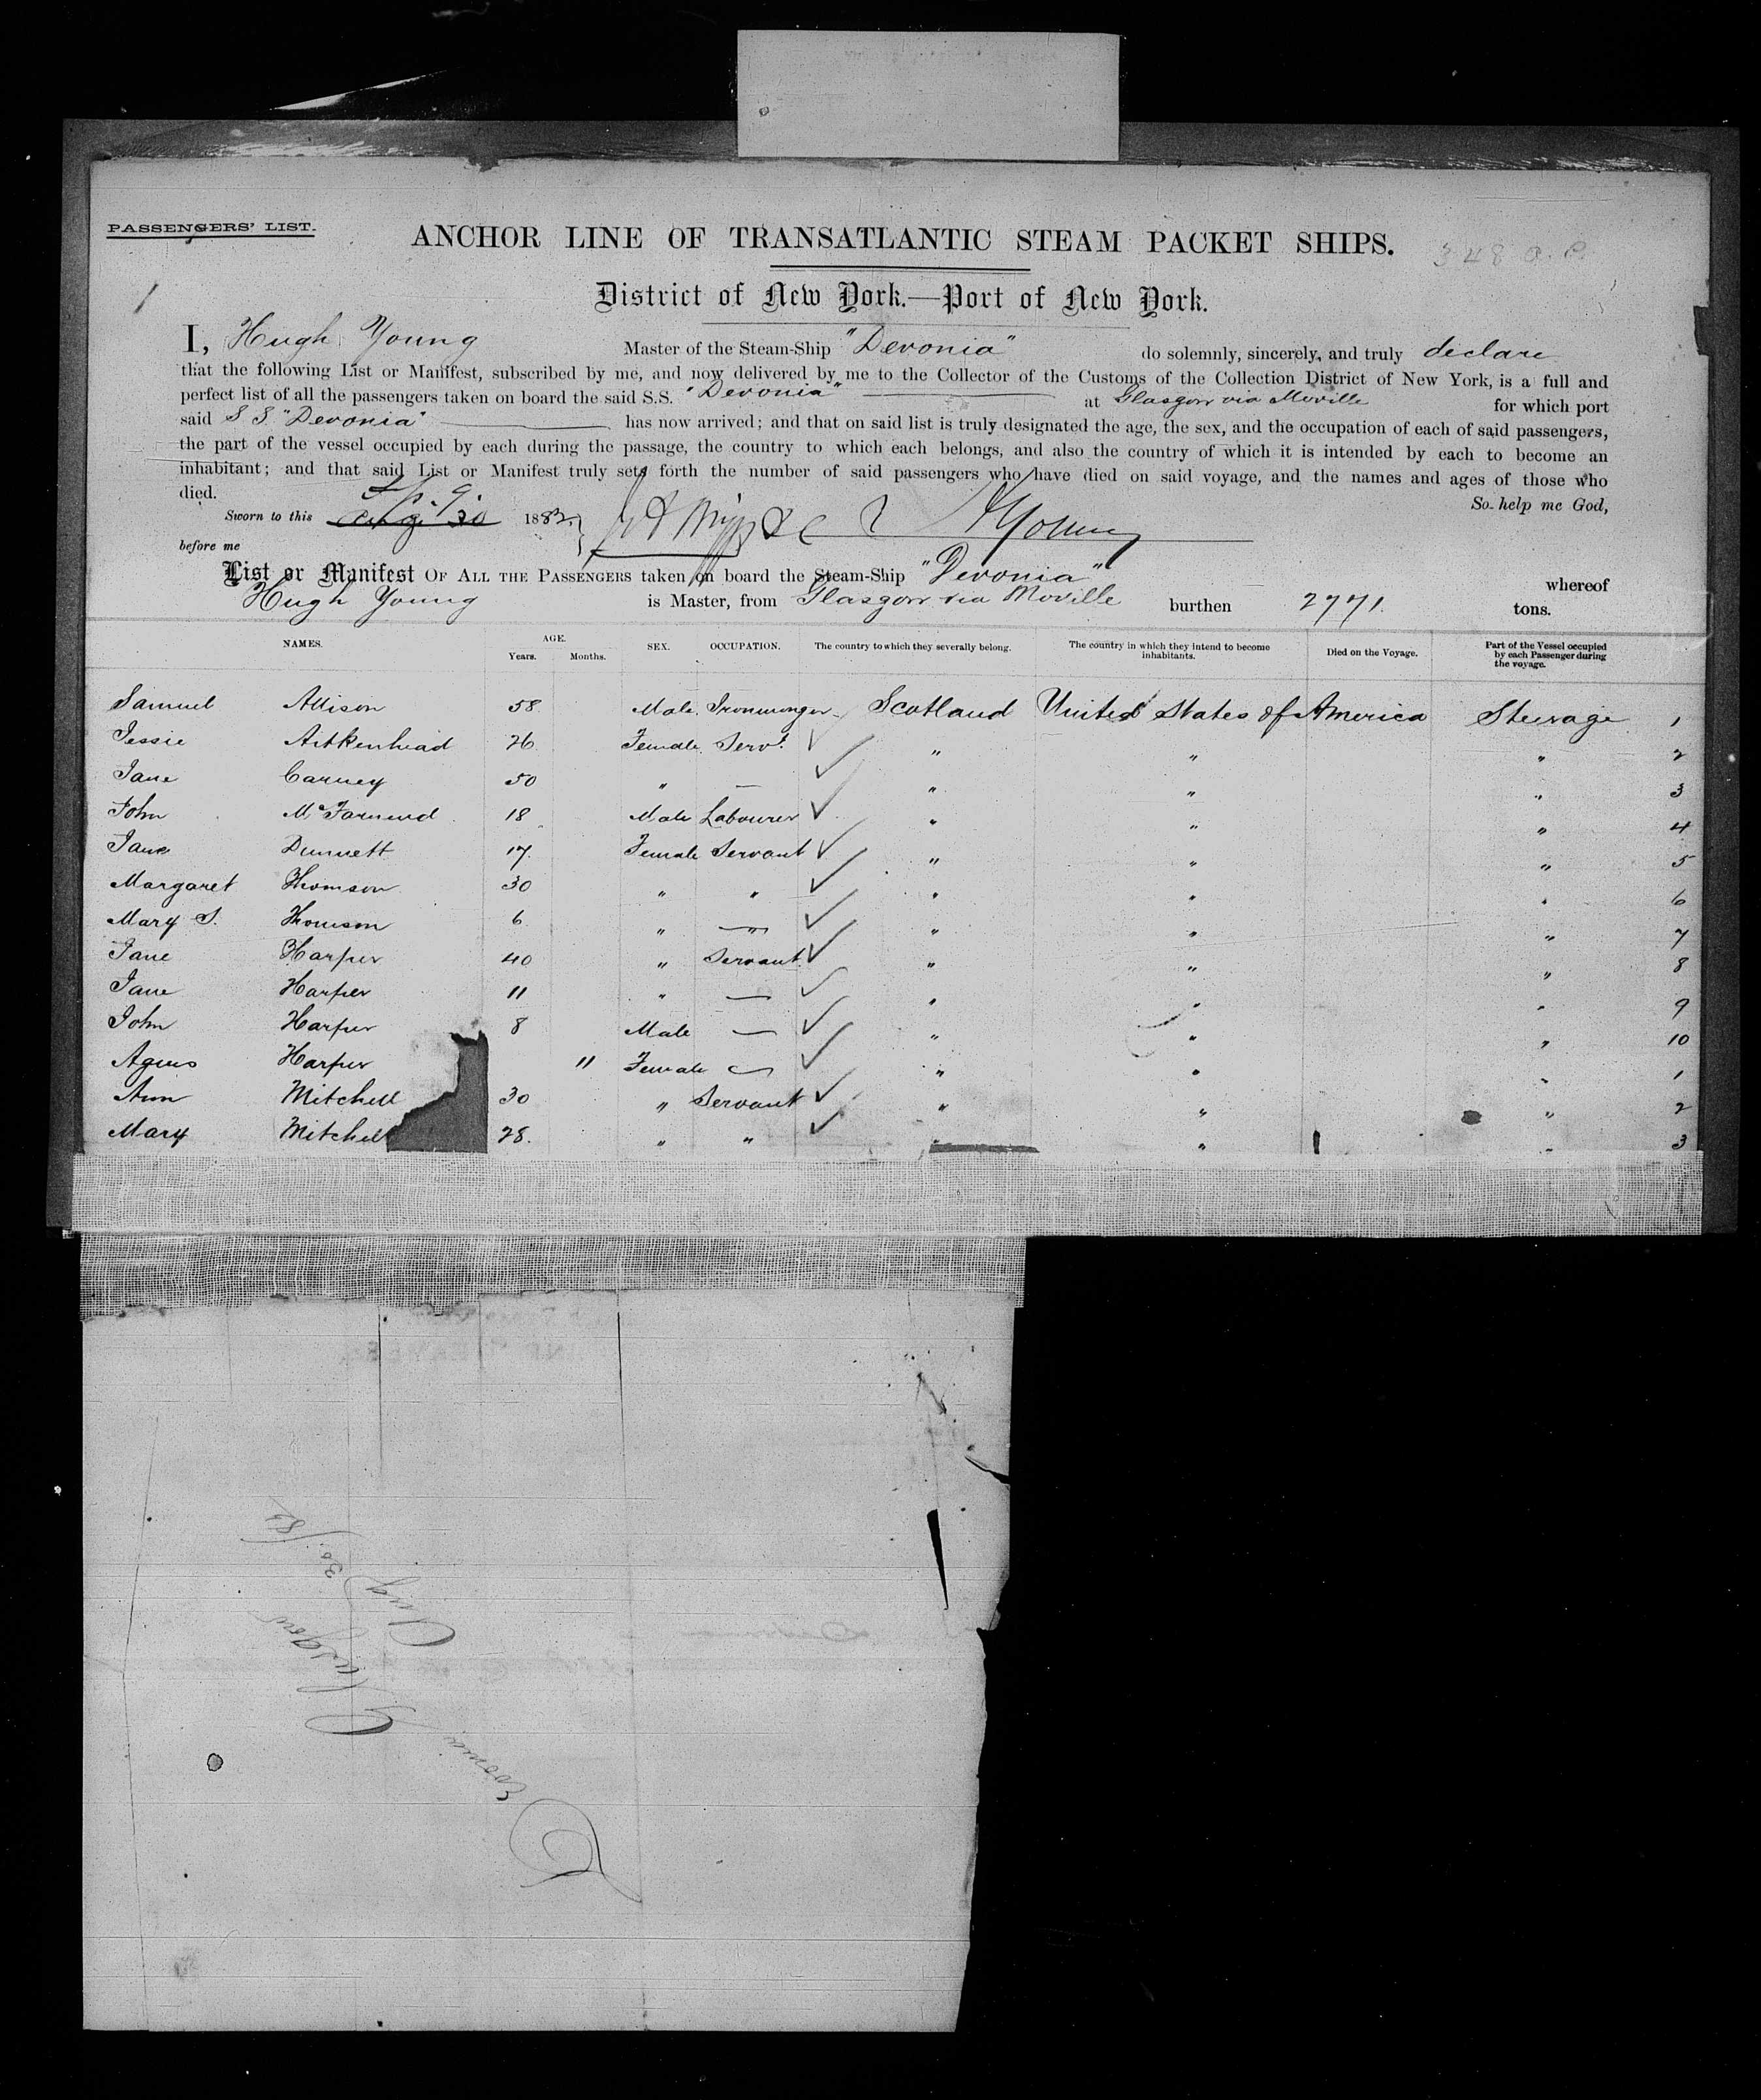 PASSENGERS' LIST.
ANCHOR LINE OF TRANSATLANTIC STEAM PACKET SHIPS.
348
District of New York.—Port of New York.
1
I, Hugh Young Master of the Steam-Ship "Devonia" do solemnly, sincerely, and truly declare
that the following List or Manifest, subscribed by me, and now delivered by me to the Collector of the Customs of the Collection District of New York, is a full and
perfect list of all the passengers taken on board the said S.S. "Devonia" at Glasgow via Moville for which port
said S S. "Devonia" has now arrived; and that on said list is truly designated the age, the sex, and the occupation of each of said passengers,
the part of the vessel occupied by each during the passage, the country to which each belongs, and also the country of which it is intended by each to become an
inhabitant; and that said List or Manifest truly sets forth the number of said passengers who have died on said voyage, and the names and ages of those who
died. So help me God,
Sworn to this Aug 30 1882, HYoung
before me
List or Manifest OF ALL THE PASSENGERS taken on board the Steam-Ship "Devonia" whereof
Hugh Young is Master, from Glasgow via Moville burthen 2771. tons.
NAMES. AGE. Years. Months. SEX. OCCUPATION. The country to which they severally belong. The country in which they intend to become inhabitants. Died on the Voyage. Part of the Vessel occupied by each Passenger during the voyage.
Samuel Allison 58 Male Ironmonger Scotland United States of America Steerage 1
Jessie Aitkenhead 26 Female Servt. " " " 2
Jane Carney 50 " — " " " 3
John 18 Male Labourer " " " 4
Jane Dunnett 17 Female Servant " " " 5
Margaret Thomson 30 " " " " " 6
Mary S. Thomson 6 " — " " " 7
Jane Harper 40 " Servant " " " 8
Jane Harper 11 " — " " " 9
John Harper 8 Male — " " " 10
Agnes Harper 11 Female — " " " 1
Ann Mitchell 30 " Servant " " " 2
Mary Mitchell 28 " " " " " 3
Devonia
Glasgow
Aug 30/82